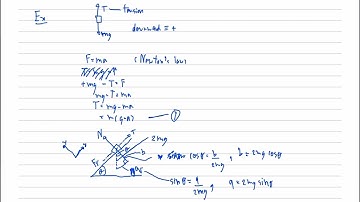 Ex
T — tension
downward = +
mg
F = ma (Newton's law)
+mg - T = F
mg - T = ma
T = mg - ma
= m(g-a) ①
Na
T
2mg
Fr
b
θ
cosθ = b/2mg , b = 2mg cosθ
sinθ = a/2mg , a = 2mg sinθ